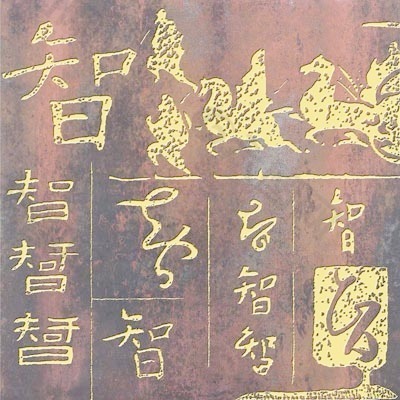 智
智
智
智
智
智
智
智
智
智